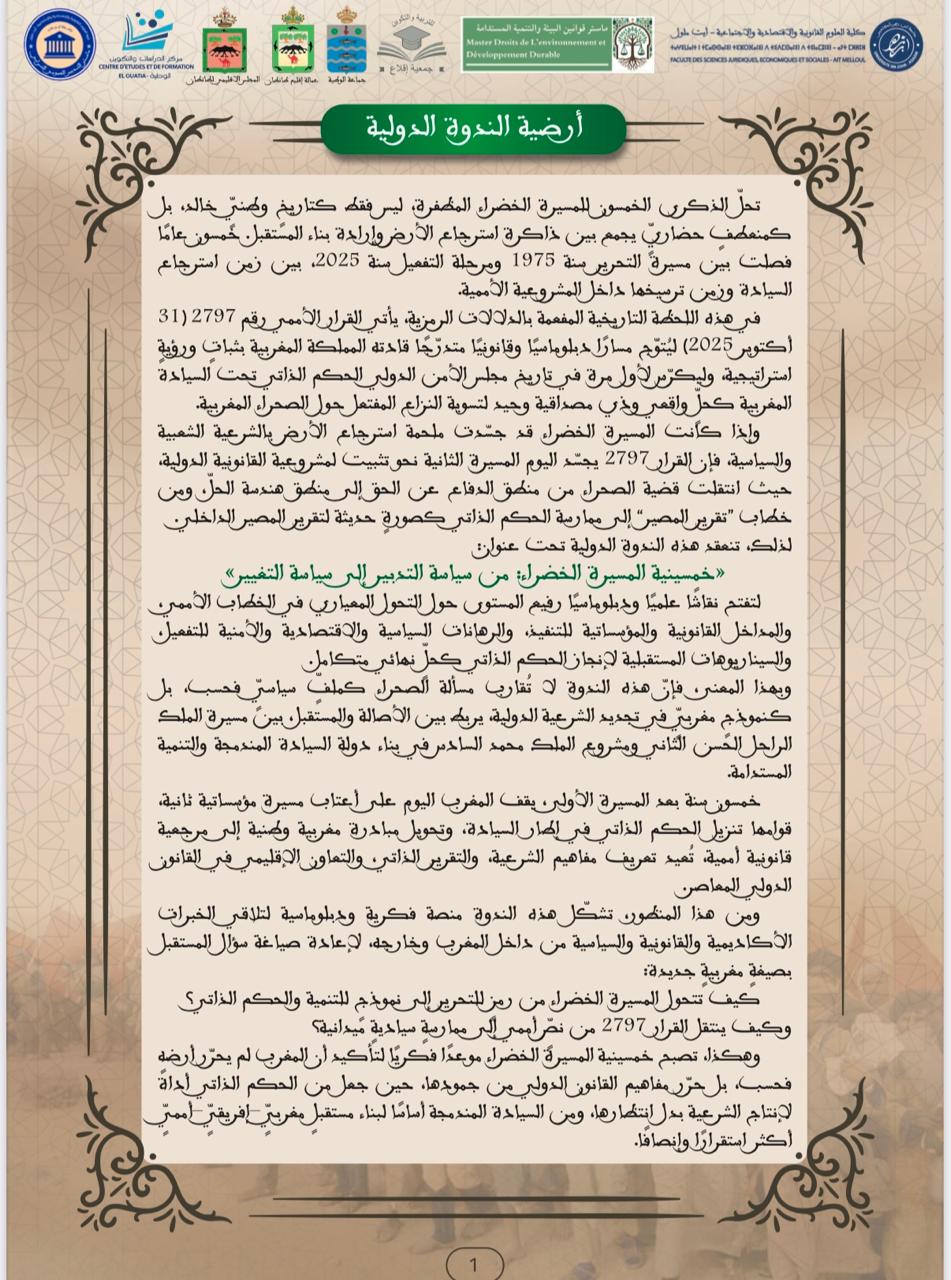 مركز الدراسات والتكوين
الوطية
CENTRE D'ETUDES ET DE FORMATION
EL OUATIA
المجلس الإقليمي لطانطان
عمالة إقليم طانطان
جماعة الوطية
للتربية والتكوين
جمعية إقلاع
ماستر قوانين البيئة والتنمية المستدامة
Master Droits de L'environnement et
Développement Durable
كلية العلوم القانونية والاقتصادية والاجتماعية - أيت ملول
FACULTE DES SCIENCES JURIDIQUES, ECONOMIQUES ET SOCIALES - AIT MELLOUL
أرضية الندوة الدولية
تحلّ الذكرى الخمسون للمسيرة الخضراء المظفرة، ليس فقط كتاريخ وطنيّ خالد، بل
كمنعطفٍ حضاريّ يجمع بين ذاكرة استرجاع الأرض وإرادة بناء المستقبل. خمسون عامًا
فصلت بين مسيرة التحرير سنة 1975 ومرحلة التفعيل سنة 2025، بين زمن استرجاع
السيادة وزمن ترسيخها داخل المشروعية الأممية.
في هذه اللحظة التاريخية المفعمة بالدلالات الرمزية، يأتي القرار الأممي رقم 2797 (31
أكتوبر 2025) ليُتوّج مسارًا دبلوماسيًا وقانونيًا متدرّجًا قادته المملكة المغربية بثباتٍ ورؤيةٍ
استراتيجية، وليكرّس لأول مرة في تاريخ مجلس الأمن الدولي الحكم الذاتي تحت السيادة
المغربية كحلّ واقعي وذي مصداقية وحيد لتسوية النزاع المفتعل حول الصحراء المغربية.
وإذا كانت المسيرة الخضراء قد جسّدت ملحمة استرجاع الأرض بالشرعية الشعبية
والسياسية، فإن القرار 2797 يجسّد اليوم المسيرة الثانية نحو تثبيت لمشروعية القانونية الدولية،
حيث انتقلت قضية الصحراء من منطق الدفاع عن الحق إلى منطق هندسة الحلّ، ومن
خطاب "تقرير المصير" إلى ممارسة الحكم الذاتي كصورةٍ حديثة لتقرير المصير الداخلي.
لذلك، تنعقد هذه الندوة الدولية تحت عنوان:
«خمسينية المسيرة الخضراء: من سياسة التدبير إلى سياسة التغيير»
لتفتح نقاشًا علميًا ودبلوماسيًا رفيع المستوى حول التحول المعياري في الخطاب الأممي،
والمداخل القانونية والمؤسساتية للتنفيذ، والرهانات السياسية والاقتصادية والأمنية للتفعيل،
والسيناريوهات المستقبلية لإنجاز الحكم الذاتي كحلّ نهائي متكامل.
وبهذا المعنى، فإنّ هذه الندوة لا تُقارب مسألة الصحراء كملفّ سياسيّ فحسب، بل
كنموذج مغربيّ في تجديد الشرعية الدولية، يربط بين الأصالة والمستقبل، بين مسيرة الملك
الراحل الحسن الثاني ومشروع الملك محمد السادس في بناء دولة السيادة المندمجة والتنمية
المستدامة.
خمسون سنة بعد المسيرة الأولى، يقف المغرب اليوم على أعتاب مسيرة مؤسساتية ثانية،
قوامها تنزيل الحكم الذاتي في إطار السيادة، وتحويل مبادرة مغربية وطنية إلى مرجعية
قانونية أممية، تُعيد تعريف مفاهيم الشرعية، والتقرير الذاتي، والتعاون الإقليمي في القانون
الدولي المعاصر.
ومن هذا المنظور، تشكّل هذه الندوة منصة فكرية ودبلوماسية لتلاقي الخبرات
الأكاديمية والقانونية والسياسية من داخل المغرب وخارجه، لإعادة صياغة سؤال المستقبل
بصيغةٍ مغربيةٍ جديدة:
كيف تتحول المسيرة الخضراء من رمز للتحرير إلى نموذج للتنمية والحكم الذاتي؟
وكيف ينتقل القرار 2797 من نصّ أممي إلى ممارسةٍ سياديةٍ ميدانية؟
وهكذا، تصبح خمسينية المسيرة الخضراء موعدًا فكريًا لتأكيد أن المغرب لم يحرّر أرضه
فحسب، بل حرّر مفاهيم القانون الدولي من جمودها، حين جعل من الحكم الذاتي أداةً
لإنتاج الشرعية بدل انتظارها، ومن السيادة المندمجة أساسًا لبناء مستقبلٍ مغربيّ–إفريقيّ–أمميّ
أكثر استقرارًا وإنصافًا.
1